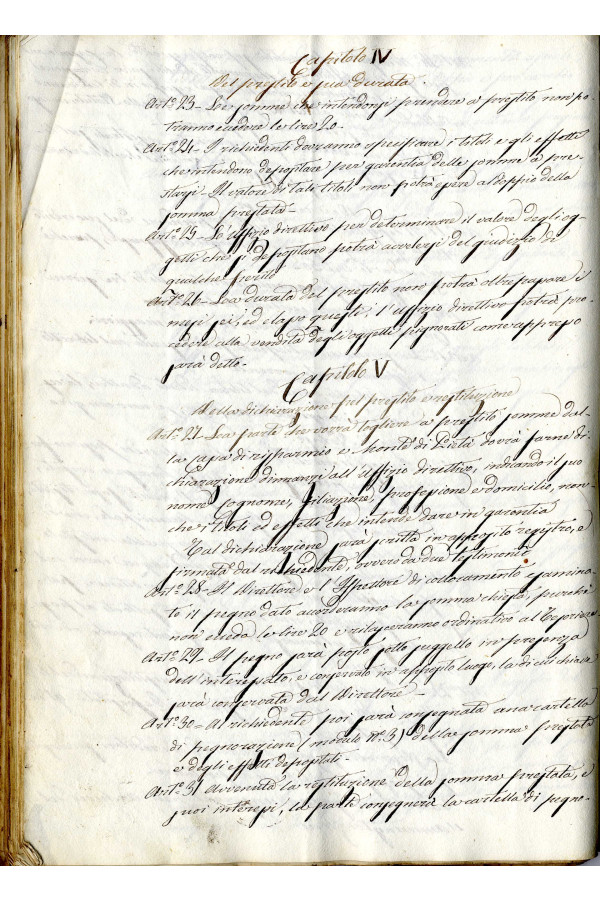 Capitolo IV
Del prestito e sua durata.
Art.º 23_ Le somme che intendonsi prendere a prestito non po-
tranno eccedere le lire 20_
Art.º 24_ I richiedenti dovranno specificare i titoli e gli effetti
che intendono depositare per garentia delle somme a pre-
starsi_ Il valore di tali titoli non potrà essere al doppio della
somma prestata_
Art.º 25_ Lo uffizio direttivo per determinare il valore degli og-
getti che si depositano potrà avvalersi del giudizio di
qualche perito
Art.º 26_ La durata del prestito non potrà oltrepassare i
mesi sei, ed elasso questi, l'uffizio direttivo potrà pro-
cedere alla vendita degli oggetti pignorati come appresso
sarà detto_
Capitolo V
Della dichiarazione pel prestito e restituzione
Art.º 27_ La parte che vorrà togliere a prestito somme dal-
la cassa di risparmio e Monte di Pietà dovrà farne di-
chiarazione dinnanzi all'Uffizio direttivo, indicando il suo
nome, Cognome, filiazione, professione e domicilio, non-
che i titoli ed effetti che intende dare in garentia
Tal dichiarazione sarà scritta in apposito registro, e
firmata dal richiedente, ovvero da due testimonî
Art.º 28_ Il Direttore e l'Ispettore di collocamento esamina-
to il pegno dato accorderanno la somma chiesta, purchè
non ecceda le lire 20 e rilasceranno ordinativo al Tesoriere
Art.º 29_ Il pegno sarà posto sotto suggello in presenza
dell'interessato, e conservato in apposito luogo, la di cui chiave
sarà conservata dal Direttore_
Art.º 30_ Al richiedente poi sarà consegnata una cartella
di pegnorazione (modulo Nº 3) della somma prestata
e degli effetti depositati_
Art.º 31 Avvenuta la restituzione della somma prestata, e
suoi interessi, la parte consegnerà la cartella di pegno-